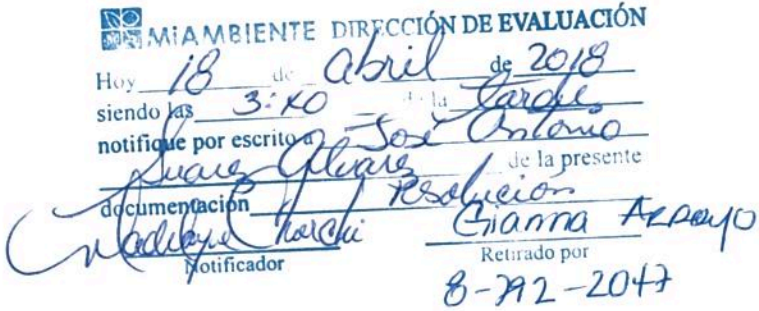 MIAMBIENTE DIRECCIÓN DE EVALUACIÓN
Hoy 18 de abril de 2018
siendo las 3:40 de la tarde
notifique por escrito a José Antonio
Suarez Alvarez de la presente
documentación Resolución
Gianna Arroyo
Notificador Retirado por
8-792-2047